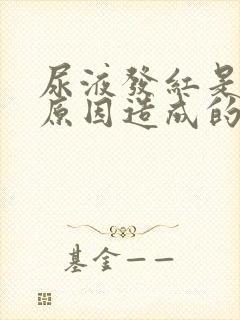 尿液發紅是
原因造成的
基金——